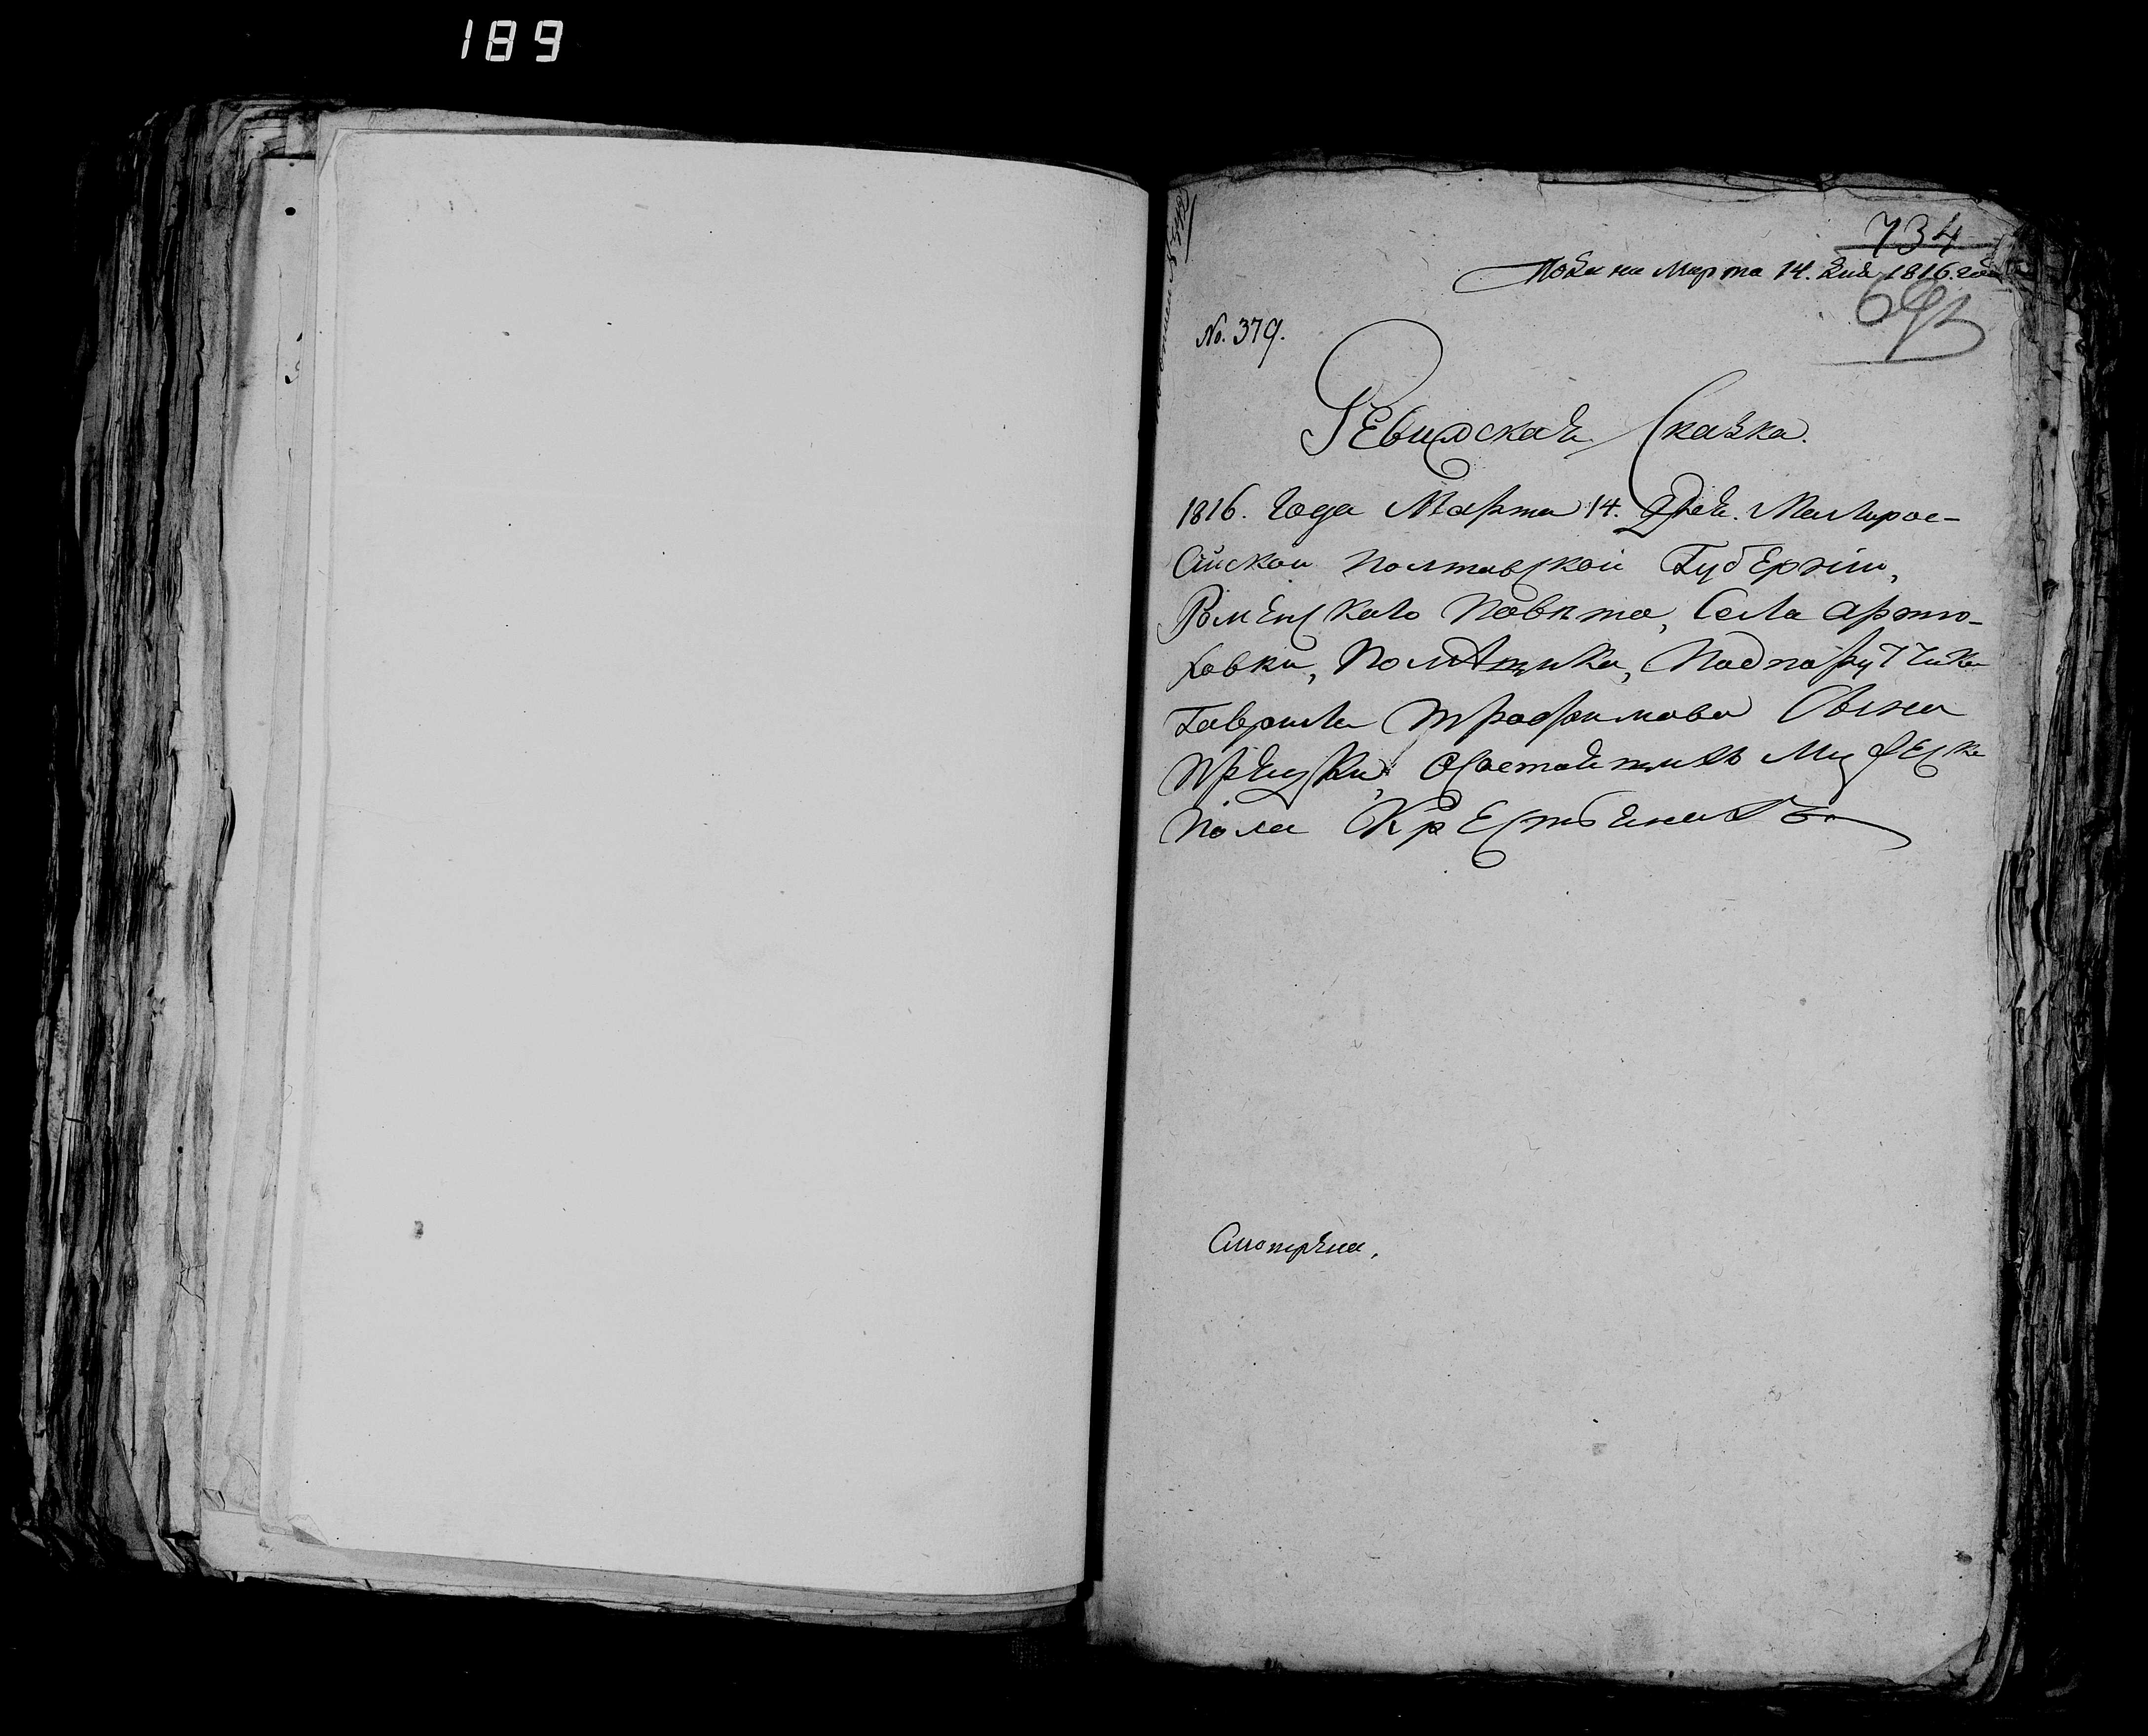 189
734
Подана Марта 14. дня 1816. года
692
No. 379.
Ревизская Сказка.
1816. Года Марта 14. Дня. Малорос-
сийской Полтавской Губернии,
Роменского Повета, Села Артю-
ховки, Помещика, Подпорутчика
Гаврила Трофимова Сына
о состоящихъ Мужеска
Пола Крестьянахъ
Смотрена,